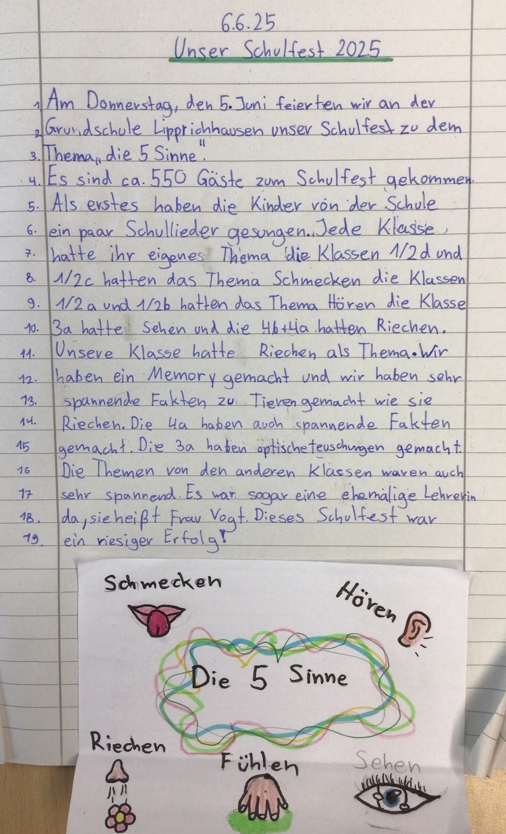 6.6.25
Unser Schulfest 2025
1. Am Donnerstag, den 5. Juni feierten wir an der
2. Grundschule Lipprichhausen unser Schulfest zu dem
3. Thema „die 5 Sinne".
4. Es sind ca. 550 Gäste zum Schulfest gekommen.
5. Als erstes haben die Kinder von der Schule
6. ein paar Schullieder gesungen. Jede Klasse
7. hatte ihr eigenes Thema die Klassen 1/2d und
8. 1/2c hatten das Thema Schmecken die Klassen
9. 1/2a und 1/2b hatten das Thema Hören die Klasse
10. 3a hatte Sehen und die 4b+4a hatten Riechen.
11. Unsere Klasse hatte Riechen als Thema. Wir
12. haben ein Memory gemacht und wir haben sehr
13. spannende Fakten zu Tieren gemacht wie sie
14. Riechen. Die 4a haben auch spannende Fakten
15 gemacht. Die 3a haben optischeteuschungen gemacht.
16 Die Themen von den anderen Klassen waren auch
17 sehr spannend. Es war sogar eine ehemalige Lehrerin
18. da, sie heißt Frau Vogt. Dieses Schulfest war
19. ein riesiger Erfolg!
Schmecken
Hören
Die 5 Sinne
Riechen
Fühlen
Sehen